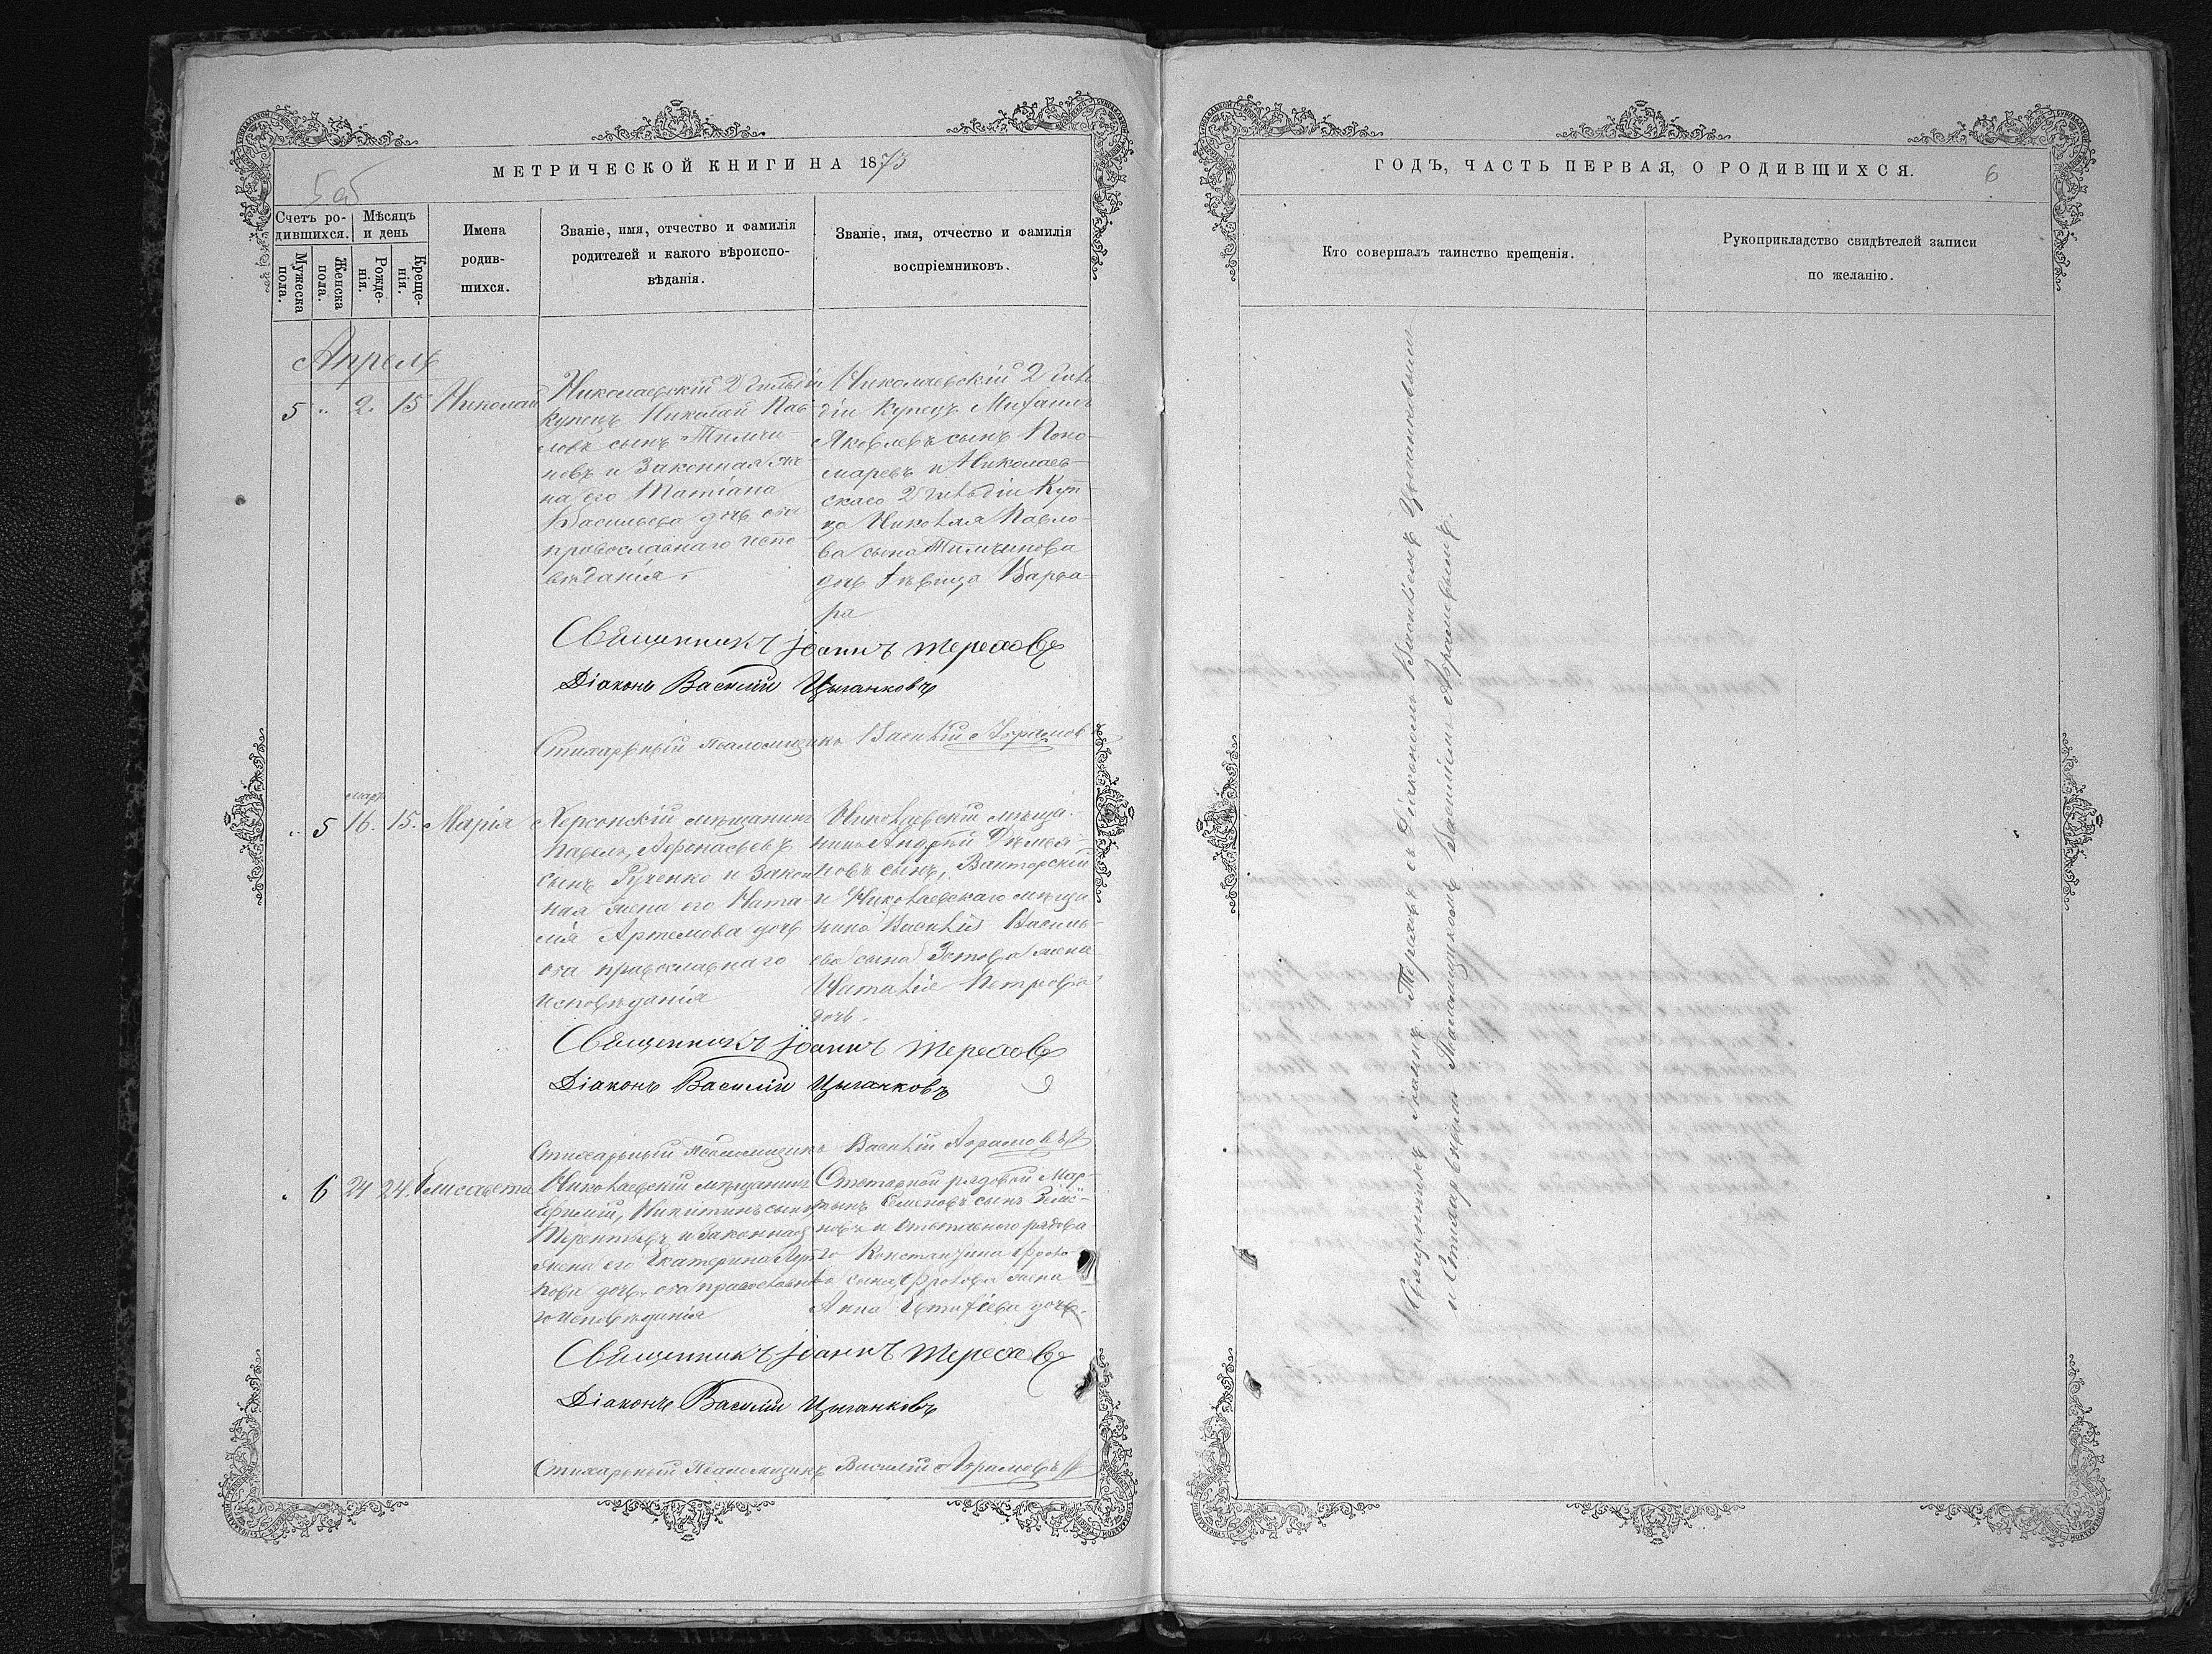 МЕТРИЧЕСКОЙ КНИГИ НА 1873
5 об
Счетъ ро-
дившихся.
Мѣсяцъ
и день
Мужеска
пола.
Женска
пола.
Рожде-
нія.
Креще-
нія.
Имена
родив-
шихся.
Званіе, имя, отчество и фамилія
родителей и какого вѣроиспо-
вѣданія.
Званіе, имя, отчество и фамилія
воспріемниковъ.
Апрель
5 " 2. 15 Николай
Николаевскій 2 гильдіи
купецъ Николай Пав-
ловъ сынъ
новъ и Законная же-
на его Татіана
Васильева дочь оба
православнаго испо-
вѣданія.
Николаевскій 2 гиль-
діи Купецъ Михаилъ
Яковлевъ сынъ Поно-
маревъ и Николаев-
скаго 2 гильдіи Куп-
ца Николая Павло-
ва сына
дочь дѣвица Варва-
ра
Священникъ Іоаннъ Тереховъ
Діаконъ Василій Цыганковъ
Стихарный Псаломщикъ Василій Аврамов
мар.
" 5 16. 15. Марія
Херсонскій мѣщанинъ
Павелъ, Афонасьевъ
сынъ Гученко и Закон-
ная жена его Ната-
лія Артемова дочь
оба православнаго
исповѣданія
Николаевскій мѣща-
нинъ Андрей Демья-
новъ сынъ, Викторскій
и Николаевскаго мѣща-
нина Василія Василь-
ева сына Зотова жена
Наталія Петрова
дочь.
Священникъ Іоаннъ Тереховъ
Діаконъ Василій Цыганковъ
Стихарный Псаломщикъ Василій Аврамовъ
" 6 24 24. Елисавета
Николаевскій мѣщанинъ
Ефимій, Никитинъ сынъ
Терентьевъ и Законная
жена его Екатерина
дочь, оба православна-
го исповѣданія
Отставной рядовой Мар-
тынъ Семеновъ сынъ
новъ и Отставного рядова-
го Константина Фроло-
ва сына, Фролова жена
Анна Евтифіева дочь.
Священникъ Іоаннъ Тереховъ
Діаконъ Василій Цыганковъ
Стихарный Псаломщикъ Василій Аврамовъ
ГОДЪ, ЧАСТЬ ПЕРВАЯ, О РОДИВШИХСЯ.
6
Кто совершалъ таинство крещенія.
Рукоприкладство свидѣтелей записи
по желанію.
Священникъ Іоаннъ Тереховъ съ Діакономъ Василіемъ Цыганковымъ
и Стихарнымъ Псаломщикомъ Василіемъ Аврамовымъ.